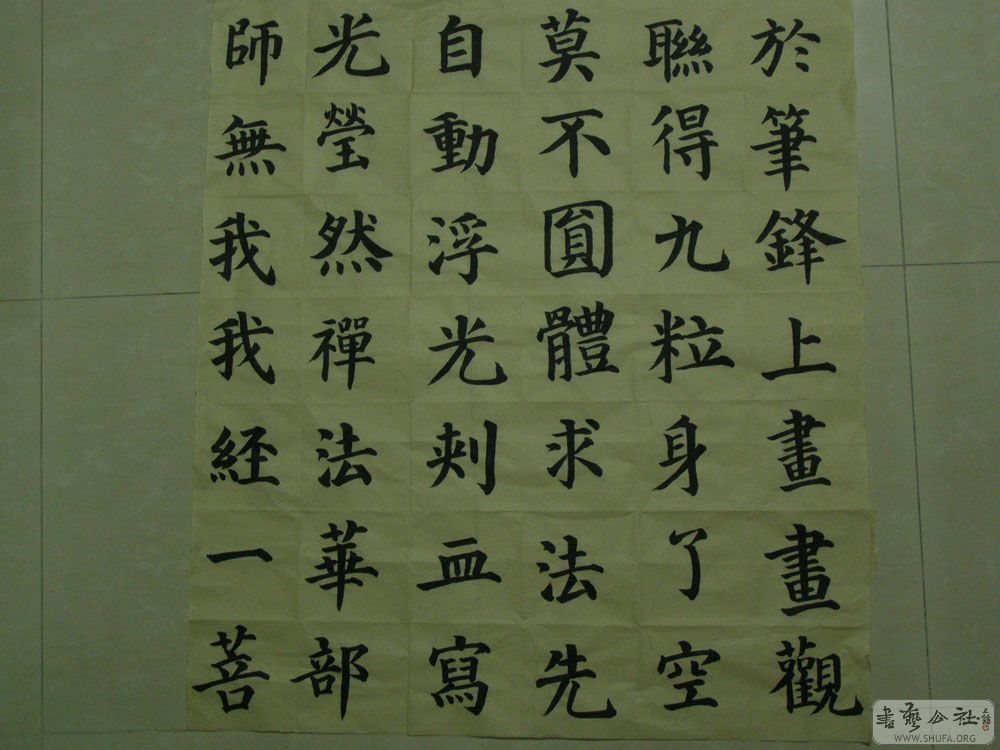 於筆鋒上畫畫觀
聯得九粒身了空
莫不圓體求法先
自動浮光刺血寫
光瑩然禪法華部
師無我我經一菩
書藝公社
WWW.SHUFA.ORG